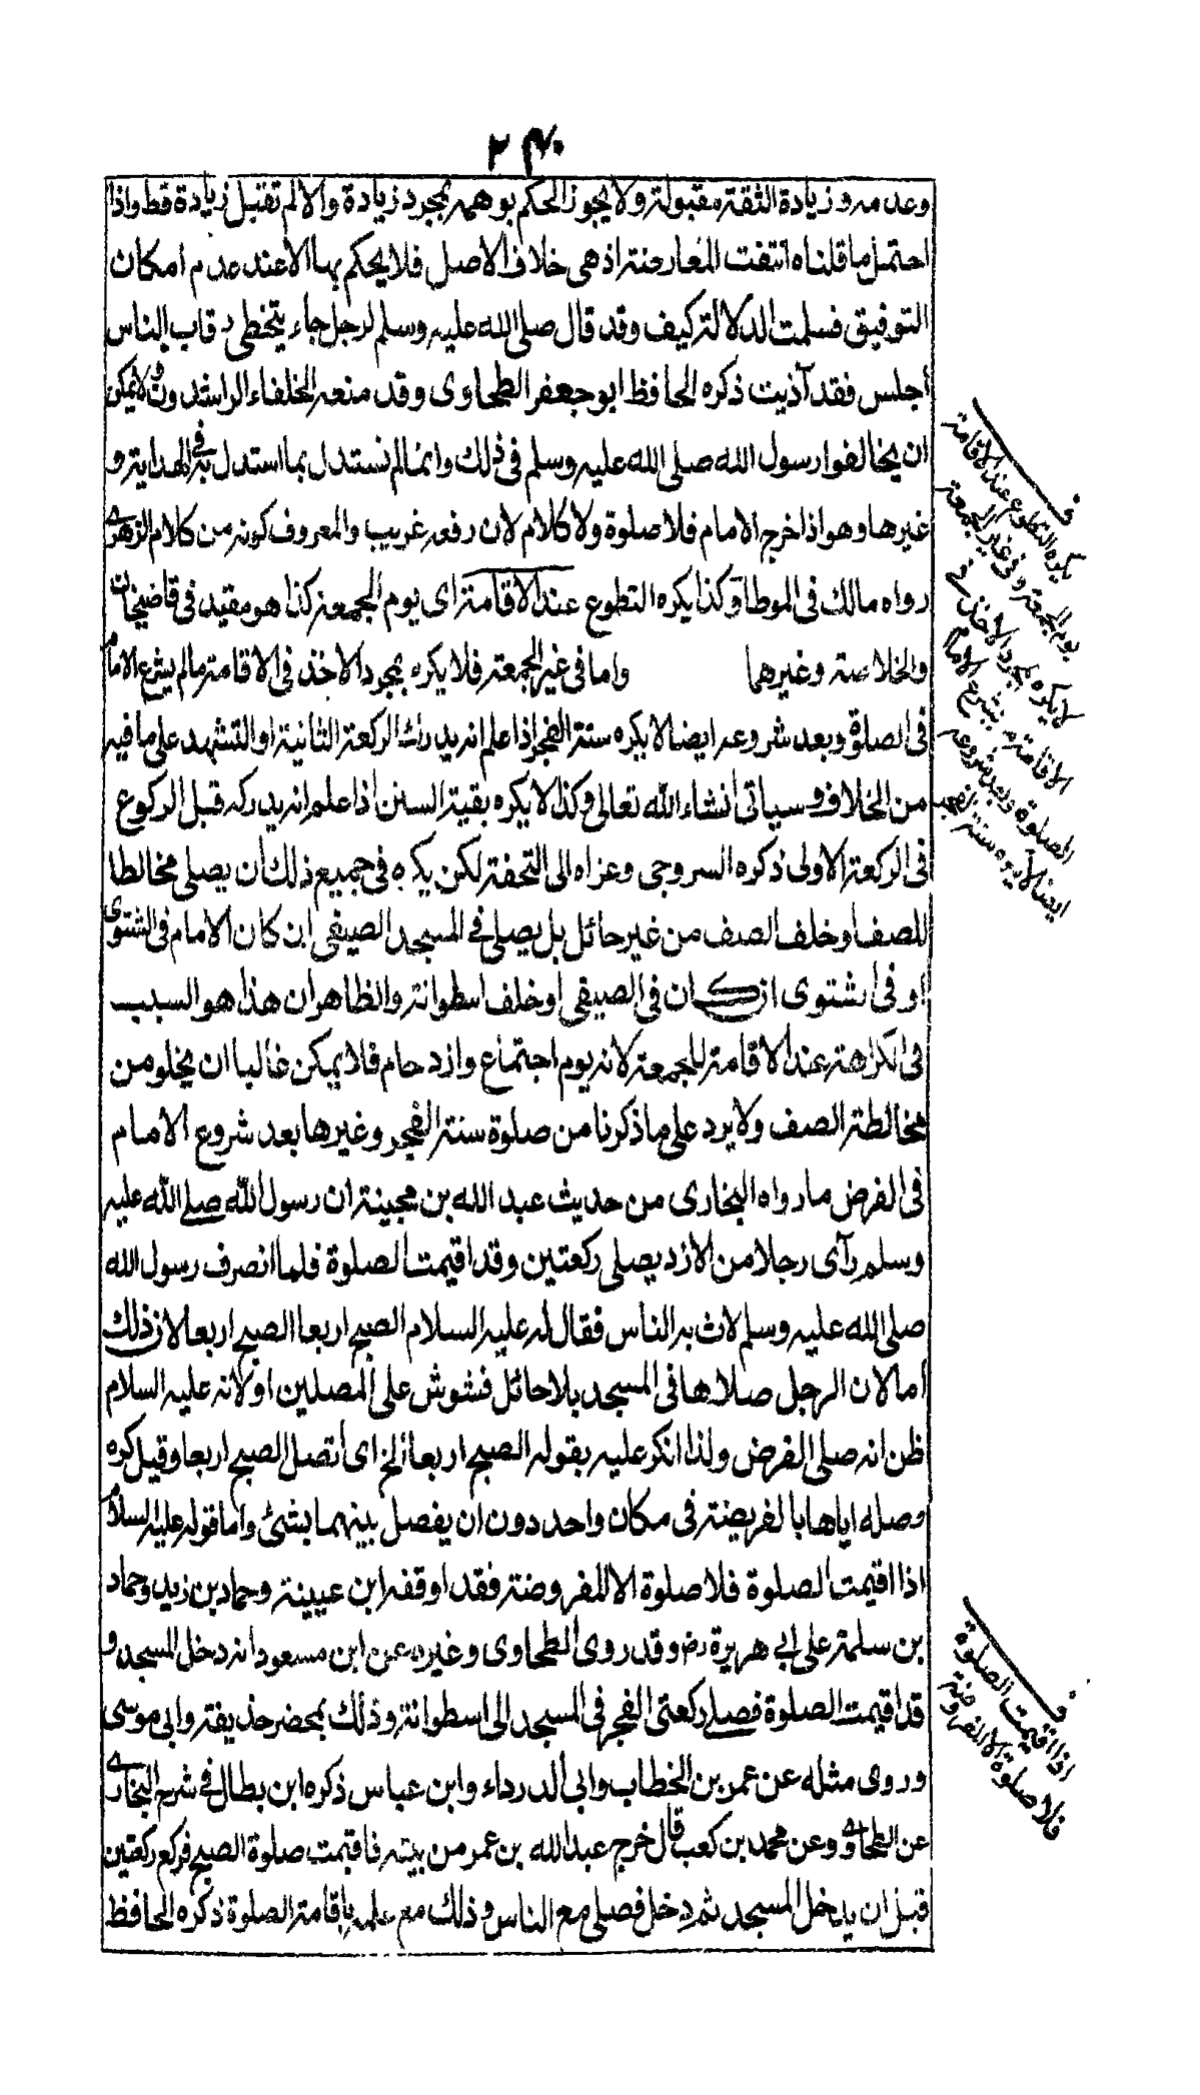 ٢٤٠
وعدمه وزيادة الثقة مقبولة ولا يجوز الحكم بوهمه بمجرد زيادة والا لم تقبل زيادة قط واذا
احتمل ما قلناه انتفت المعارضة اذ هى خلاف الاصل فلا يحكم بها الا عند عدم امكان
التوفيق فسلمت الدلالة كيف وقد قال صلى الله عليه وسلم لرجل جاء يتخطى رقاب الناس
أجلس فقد آذيت ذكره الحافظ ابو جعفر الطحاوى وقد منعه الخلفاء الراشدون ولا يمكن
ان يخالفوا رسول الله صلى الله عليه وسلم فى ذلك وانما لم نستدل بما استدل به فى الهداية و
غيرها وهو اذا خرج الامام فلا صلوة ولا كلام لان رفعه غريب والمعروف كونه من كلام الزهرى
رواه مالك فى الموطا وكذا يكره التطوع عند الاقامة اى يوم الجمعة كذا هو مقيد فى قاضيخان
والخلاصة وغيرهما واما فى غير الجمعة فلا يكره بمجرد الاخذ فى الاقامة مالم يشرع الامام
فى الصلوة وبعد شروعه ايضا لا يكره سنة الفجر اذا علم انه يدرك الركعة الثانية او التشهد على ما فيه
من الخلاف وسياتى انشاء الله تعالى وكذا لا يكره بقية السنن اذا علم انه يدركه قبل الركوع
فى الركعة الاولى ذكره السروجى وعزاه الى التحفة لكن يكره فى جميع ذلك ان يصلى مخالطا
للصف او خلف الصف من غير حائل بل يصلى فى المسجد الصيفى ان كان الامام فى الشتوى
او فى الشتوى ان كان فى الصيفى او خلف اسطوانة والظاهر ان هذا هو السبب
فى الكراهة عند الاقامة للجمعة لانه يوم اجتماع وازدحام فلا يمكن غالبا ان يخلو من
مخالطة الصف ولا يرد على ما ذكرنا من صلوة سنة الفجر وغيرها بعد شروع الامام
فى الفرض ما رواه البخارى من حديث عبد الله بن مجينة ان رسول الله صلى الله عليه
وسلم رآى رجلا من الازد يصلى ركعتين وقد اقيمت الصلوة فلما انصرف رسول الله
صلى الله عليه وسلم لاث به الناس فقال له عليه السلام الصبح اربعا الصبح اربعا لان ذلك
اما لان الرجل صلاها فى المسجد بلا حائل فشوش على المصلين او لانه عليه السلام
ظن انه صلى الفرض ولذا انكر عليه بقوله الصبح اربعا الخ اى أتصل الصبح اربعا وقيل كره
وصله اياها بالفريضة فى مكان واحد دون ان يفصل بينهما بشئ واما قوله عليه السلام
اذا اقيمت الصلوة فلا صلوة الا المفروضة فقد اوقفه ابن عيينة وحماد بن زيد وحماد
بن سلمة على ابى هريرة رض وقد روى الطحاوى وغيره عن ابن مسعود انه دخل المسجد و
قد اقيمت الصلوة فصلى ركعتى الفجر فى المسجد الى اسطوانة وذلك بمحضر حذيفة وابى موسى
وروى مثله عن عمر بن الخطاب وابى الدرداء وابن عباس ذكره ابن بطال فى شرح البخارى
عن الطحاوى وعن محمد بن كعب قال خرج عبد الله بن عمر من بيته فاقيمت صلوة الصبح فركع ركعتين
قبل ان يدخل المسجد ثم دخل فصلى مع الناس وذلك مع علمه باقامة الصلوة ذكره الحافظ
ف
يكره التطوع عند الاقامة
يوم الجمعة وفى غير الجمعة
لا يكره بمجرد الاخذ فى
الاقامة مالم يشرع الامام
الصلوة وبعد شروعه
ايضا لا يكره سنة الفجر
ف
اذا اقيمت الصلوة
فلا صلوة الا المفروضة